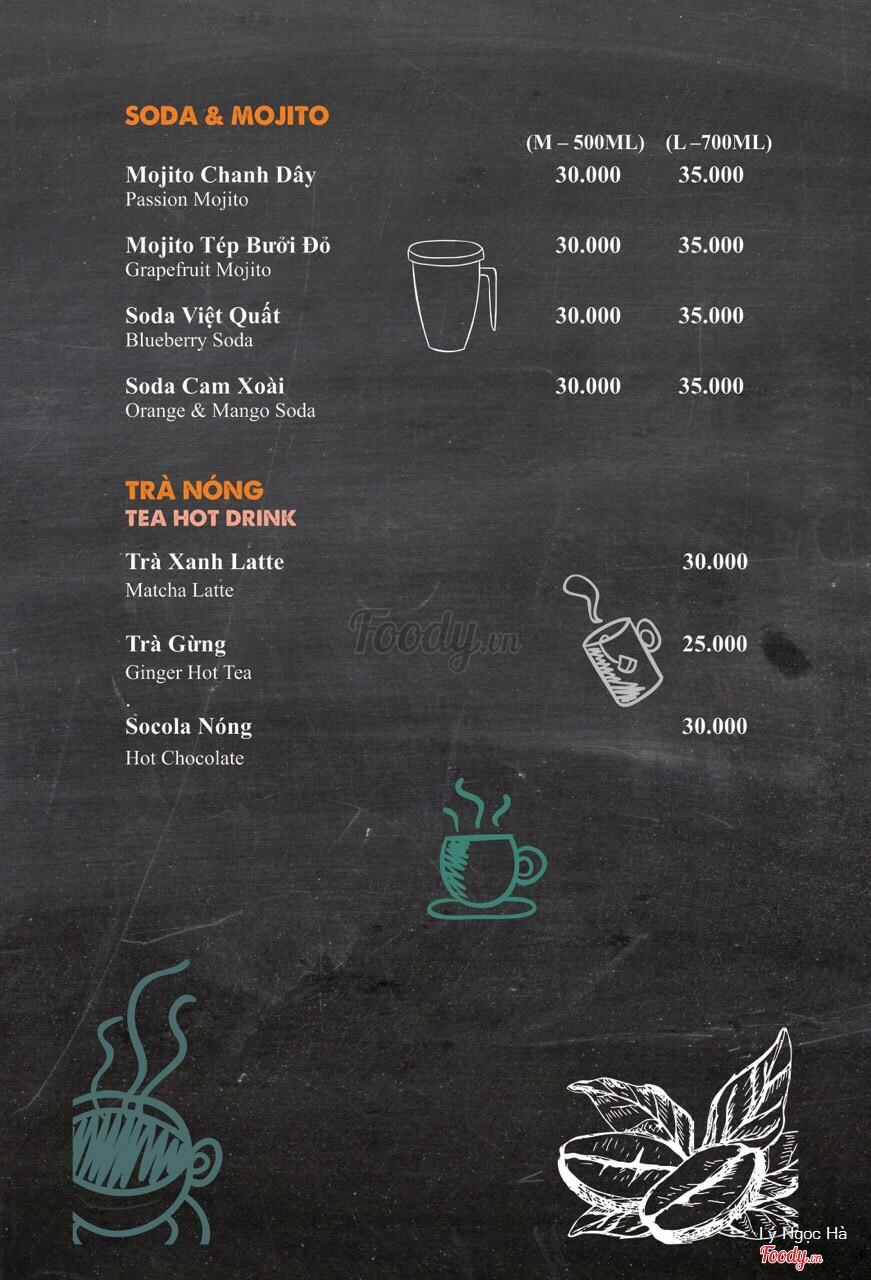 SODA & MOJITO
(M – 500ML) (L –700ML)
Mojito Chanh Dây 30.000 35.000
Passion Mojito
Mojito Tép Bưởi Đỏ 30.000 35.000
Grapefruit Mojito
Soda Việt Quất 30.000 35.000
Blueberry Soda
Soda Cam Xoài 30.000 35.000
Orange & Mango Soda
TRÀ NÓNG
TEA HOT DRINK
Trà Xanh Latte 30.000
Matcha Latte
Foody.vn
Trà Gừng 25.000
Ginger Hot Tea
.
Socola Nóng 30.000
Hot Chocolate
Lý Ngọc Hà
Foody.vn